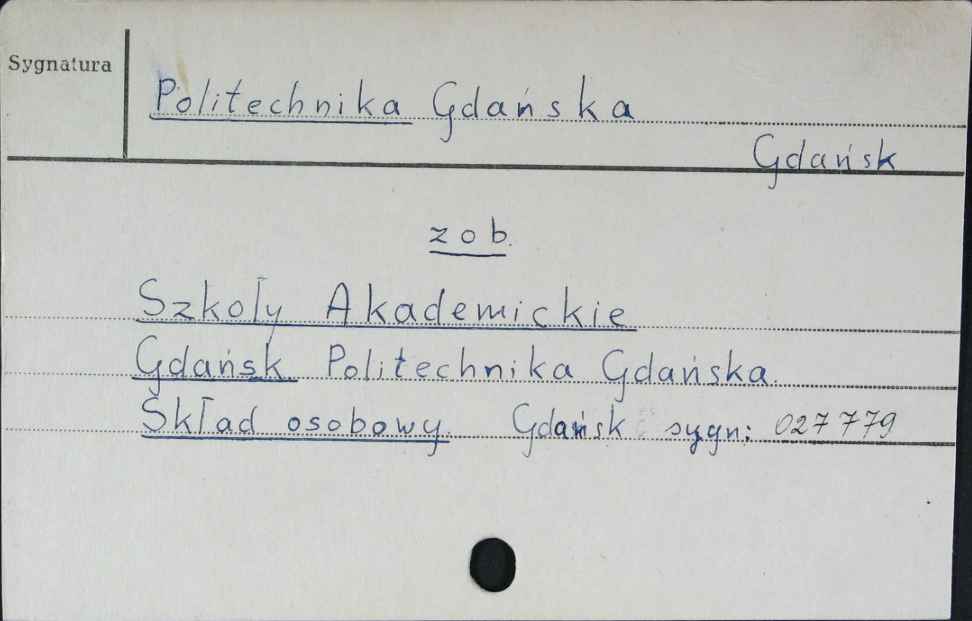 Sygnatura
Politechnika Gdańska
Gdańsk
zob.
Szkoły Akademickie
Gdańsk Politechnika Gdańska.
Skład osobowy. Gdańsk sygn: 027779